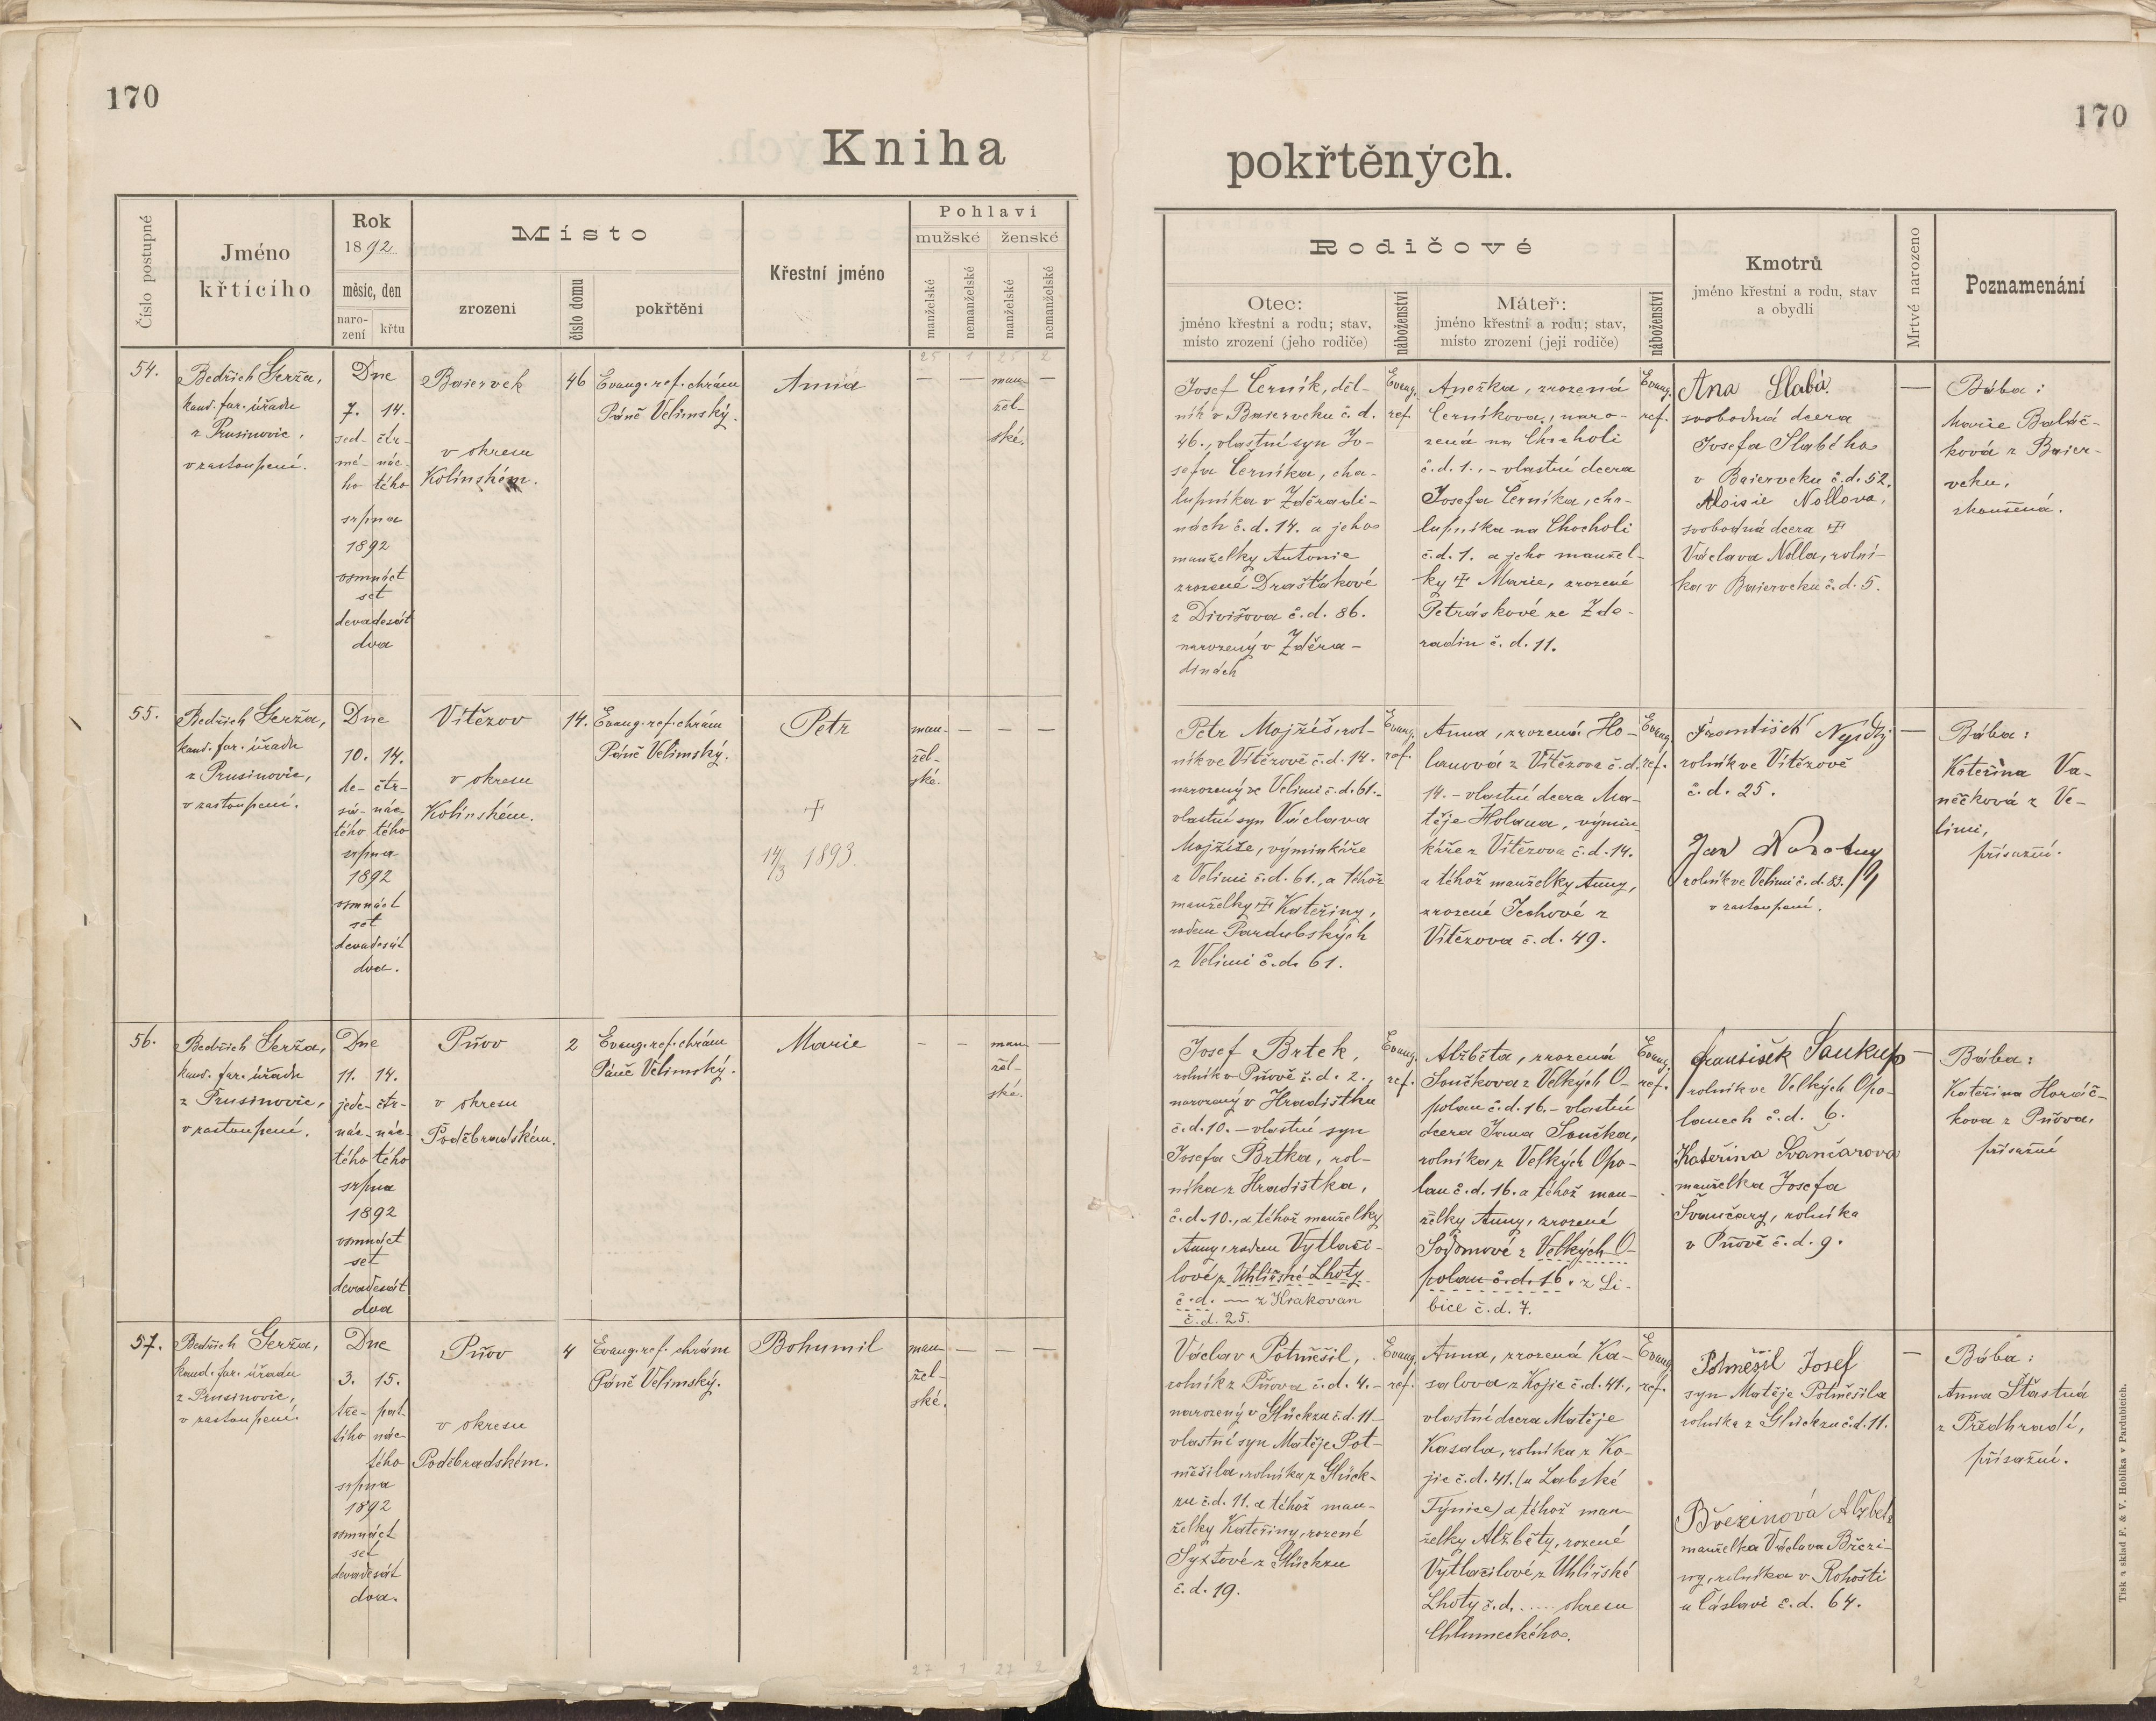 170
Kniha
Číslo postupné
Jméno
křtícího
Rok
1892
měsíc, den
naro-
zení
křtu
Místo
zrození
číslo domu
pokřtění
Křestní jméno
Pohlaví
mužské
ženské
manželské
nemanželské
manželské
nemanželské
25 1 25 2
54.
Bedřich Gerža,
kand. far. úřadu
z Prusinovic,
v zastoupení.
Dne
7. 14.
sed- čtr-
mé- nác-
ho tého
srpna
1892
osmnáct
set
devadesát
dva
Baiervek
v okresu
Kolínském.
46
Evang. ref. chrám
Páně Velimský.
Anna
— — man- —
žel-
ské.
55.
Bedřich Gerža,
kand. far. úřadu
z Prusinovic,
v zastoupení.
Dne
10. 14.
de- čtr-
sá- nác-
tého tého
srpna
1892
osmnáct
set
devadesát
dva.
Vítězov
v okresu
Kolínském.
14.
Evang. ref. chrám
Páně Velimský.
Petr
†
14/3 1893.
man- — — —
žel-
ské.
56.
Bedřich Gerža,
kand. far. úřadu
z Prusinovic,
v zastoupení.
Dne
11. 14.
jede- čtr-
nác- nác-
tého tého
srpna
1892
osmnáct
set
devadesát
dva
Pňov
v okresu
Poděbradském.
2
Evang. ref. chrám
Páně Velimský.
Marie
— — man- —
žel-
ské.
57.
Bedřich Gerža,
kand. far. úřadu
z Prusinovic,
v zastoupení.
Dne
3. 15.
tře- pat-
tího nác-
tého
srpna
1892
osmnáct
set
devadesát
dva.
Pňov
v okresu
Poděbradském.
4
Evang. ref. chrám
Páně Velimský.
Bohumil
man- — — —
žel-
ské.
27 1 27 2
170
pokřtěných.
Rodičové
Otec:
jméno křestní a rodu; stav,
místo zrození (jeho rodiče)
náboženství
Máteř:
jméno křestní a rodu; stav,
místo zrození (její rodiče)
náboženství
Kmotrů
jméno křestní a rodu, stav
a obydlí
Mrtvé narozeno
Poznamenání
Josef Černík, děl-
ník v Baierveku č. d.
46., vlastní syn Jo-
sefa Černíka, cha-
lupníka v Zděradi-
nách č. d. 14. a jeho
manželky Antonie
zrozené Drašťákové
z Divišova č. d. 86.
narozený v Zděra-
dinách
Evang.
ref.
Anežka, zrozená
Černíkova, naro-
zená na Chocholi
č. d. 1., - vlastní dcera
Josefa Černíka, cha-
lupníka na Chocholi
č. d. 1. a jeho manžel-
ky † Marie, zrozené
Petráskové ze Zdě-
radin č. d. 11.
Evang.
ref.
Ana Slabá.
svobodná dcera
Josefa Slabého
v Baierveku č. d. 52.
Aloisie Nollova,
svobodná dcera †
Václava Nolla, rolní-
ka v Baierveku č. d. 5.
—
Bába:
Marie Baláč-
ková z Baier-
veku,
zkoušená.
Petr Mojžíš, rol-
ník ve Vítězově č. d. 14.
narozený ve Velimi č. d. 61. -
vlastní syn Václava
Mojžíše, výminkáře
z Velimi č. d. 61., a téhož
manželky † Kateřiny,
rodem Pardubských
z Velimi č. d. 61.
Evang.
ref.
Anna, zrozená Ho-
lanová z Vítězova č. d.
14. - vlastní dcera Ma-
těje Holana, výmin-
káře z Vítězova č. d. 14.
a téhož manželky Anny,
zrozené Jechové z
Vítězova č. d. 49.
Evang.
ref.
rolník ve Vítězově
č. d. 25.
Jan Novotny
rolník ve Velimi č. d. 83.
v zastoupení.
—
Bába:
Kateřina Va-
něčková z Ve-
limi,
přísažní.
Josef Brtek,
rolník v Pňově č. d. 2.,
narozený v Hradištku
č. d. 10. - vlastní syn
Josefa Brtka, rol-
níka z Hradištka,
č. d. 10., a téhož manželky
Anny, rodem Vytlači-
lové z Uhlířské Lhoty
č. d. — z Krakovan
č. d. 25.
Evang.
ref.
Alžběta, zrozená
Součkova z Velkých O-
polan č. d. 16. - vlastní
dcera Jana Součka,
rolníka z Velkých Opo-
lan č. d. 16. a téhož man-
želky Anny, zrozené
Sodomové z Velkých O-
polan č. d. 16. z Li-
bice č. d. 7.
Evang.
ref.
František Soukup
rolník ve Velkých Opo-
lanech č. d. 6.
Kateřina Svančarova
manželka Josefa
Švančary, rolníka
v Pňově č. d. 9.
—
Bába:
Kateřina Horáč-
kova z Pňova,
přísažní
Václav Potměšil,
rolník z Pňova č. d. 4. -
narozený v Glückzu č. d. 11 -
vlastní syn Matěje Pot-
měšila, rolníka z Glück-
zu č. d. 11. a téhož man-
želky Kateřiny, rozené
Syxtové z Glückzu
č. d. 19.
Evang.
ref.
Anna, zrozená Ka-
salova z Kojic č. d. 41.,
vlastní dcera Matěje
Kasala, rolníka z Ko-
jic č. d. 41. (u Labské
Týnice) a téhož man-
želky Alžběty, rozené
Vytlačilové z Uhlířské
Lhoty č. d. .... okresu
Chlumeckého.
Evang.
ref.
Potměšil Josef
syn Matěje Potměšila
rolníka z Glückzu č. d. 11.
Březinová Alžbeta
manželka Václava Březi-
ny, rolníka v Rohošti
u Čáslavi č. d. 64.
—
Bába:
Anna Šťastná
z Předhradí,
přísažní.
2
Tisk a sklad F. & V. Hoblíka v Pardubicích.